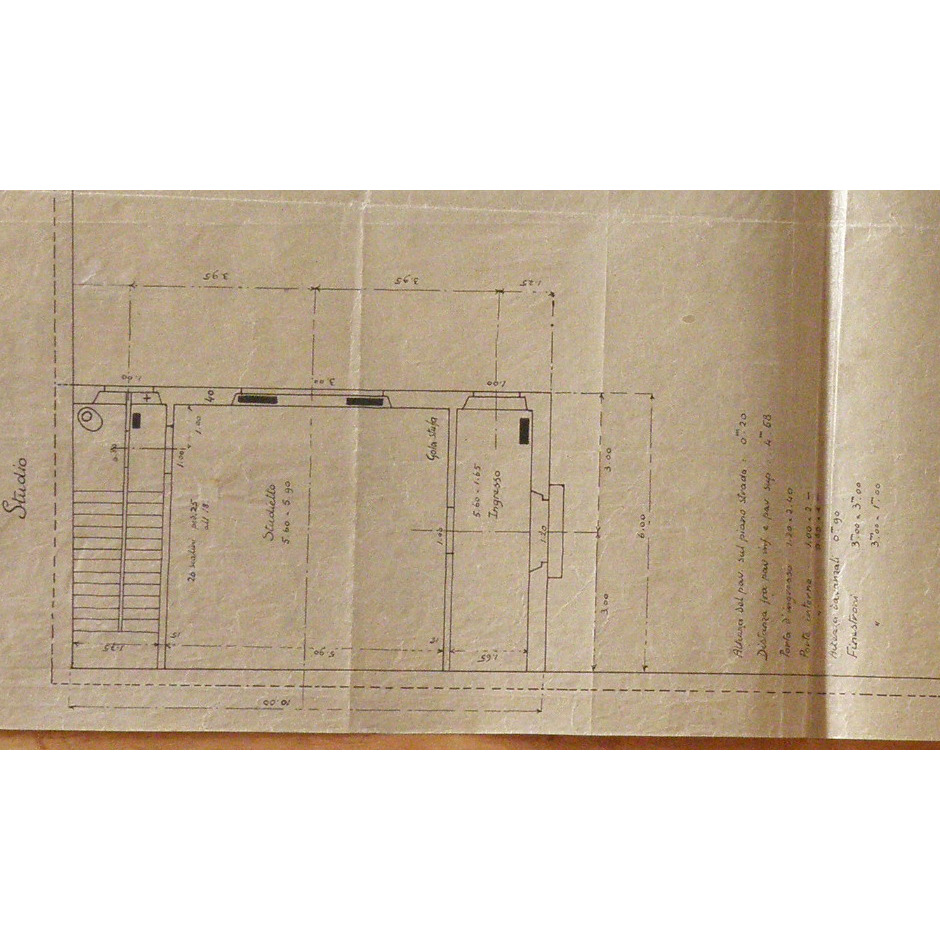 Studio
3.95
3.95
1.25
1.00
3.00
1.00
40
0.80
1.00
1.00
20 scalini
all. 18
Studietto
5.60 × 5.90
Gola stufa
5.60 × 1.65
Ingresso
1.00
1.20
3.00
3.00
6.00
1.75
5.90
1.65
10.00
Altezza del pav. sul piano strada: 0.m20
Distanza fra pav. inf. e pav. sup. 4.m68
Porta d'ingresso 1.20 × 2.40
Porte interne 1.00 × 2.—
" 0.80 × 2.—
Altezza davanzali 0.m90
Finestroni 3.m00 × 3.m00
" 3.m00 × 1.m00